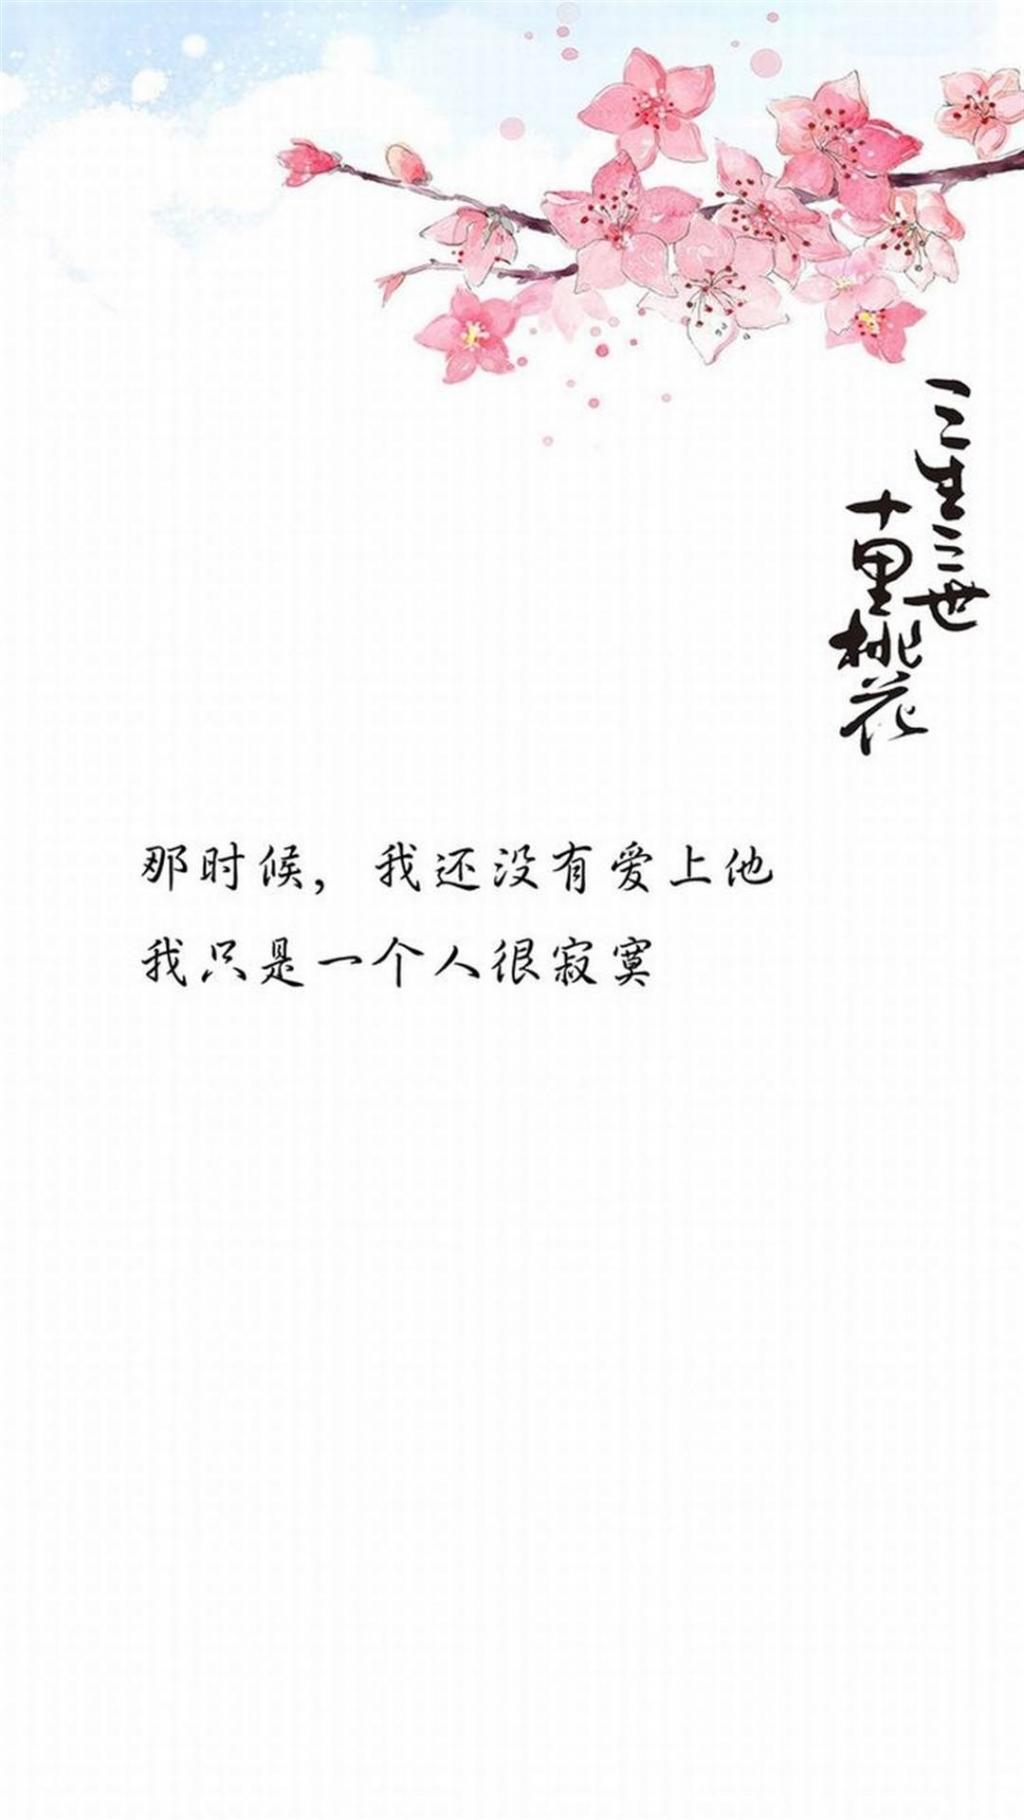 三生三世
十里桃花
那时候，我还没有爱上他
我只是一个人很寂寞